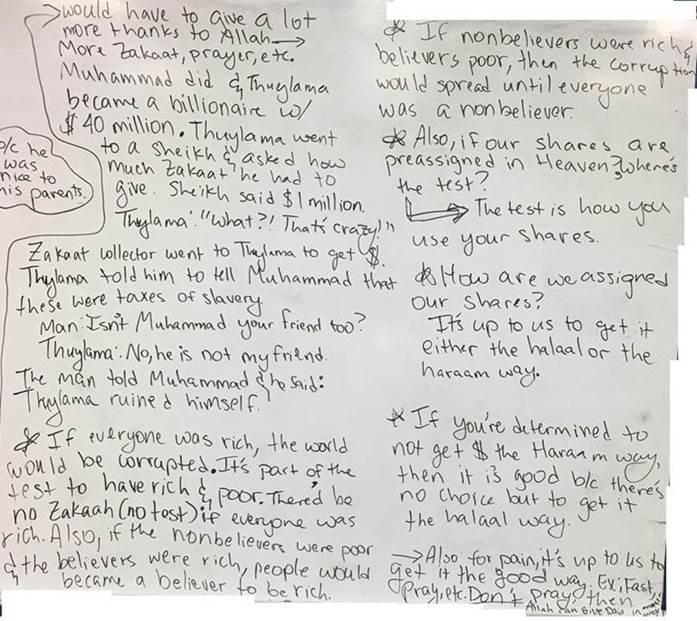 would have to give a lot
more thanks to Allah →
More Zakaat, prayer, etc.
Muhammad did & Thuglama
became a billionaire w/
$40 million. Thuylama went
to a Sheikh & asked how
much Zakaat he had to
give. Sheikh said $1 million.
Thylama: "What?! That's crazy!"
b/c he
was
nice to
his parents.
Zakaat collector went to Thylama to get $.
Thylama told him to tell Muhammad that
these were taxes of slavery.
Man: Isn't Muhammad your friend too?
Thuylama: No, he is not my friend.
The man told Muhammad & he said:
Thylama ruined himself.
* If everyone was rich, the world
would be corrupted. It's part of the
test to have rich & poor. There'd be
no Zakaah (no test) if everyone was
rich. Also, if the nonbelievers were poor
& the believers were rich, people would
became a believer to be rich.
* If nonbelievers were rich &
believers poor, then the corruption
would spread until everyone
was a nonbeliever.
* Also, if our shares are
preassigned in Heaven, where's
the test?
→ The test is how you
use your shares.
* How are we assigned
our shares?
It's up to us to get it
either the halaal or the
haraam way.
* If you're determined to
not get $ the Haraam way,
then it is good b/c there's
no choice but to get it
the halaal way.
→ Also for pain, it's up to us to
get it the good way. Ex: Fast,
pray, etc. Don't pray? then
Allah can give pain in way